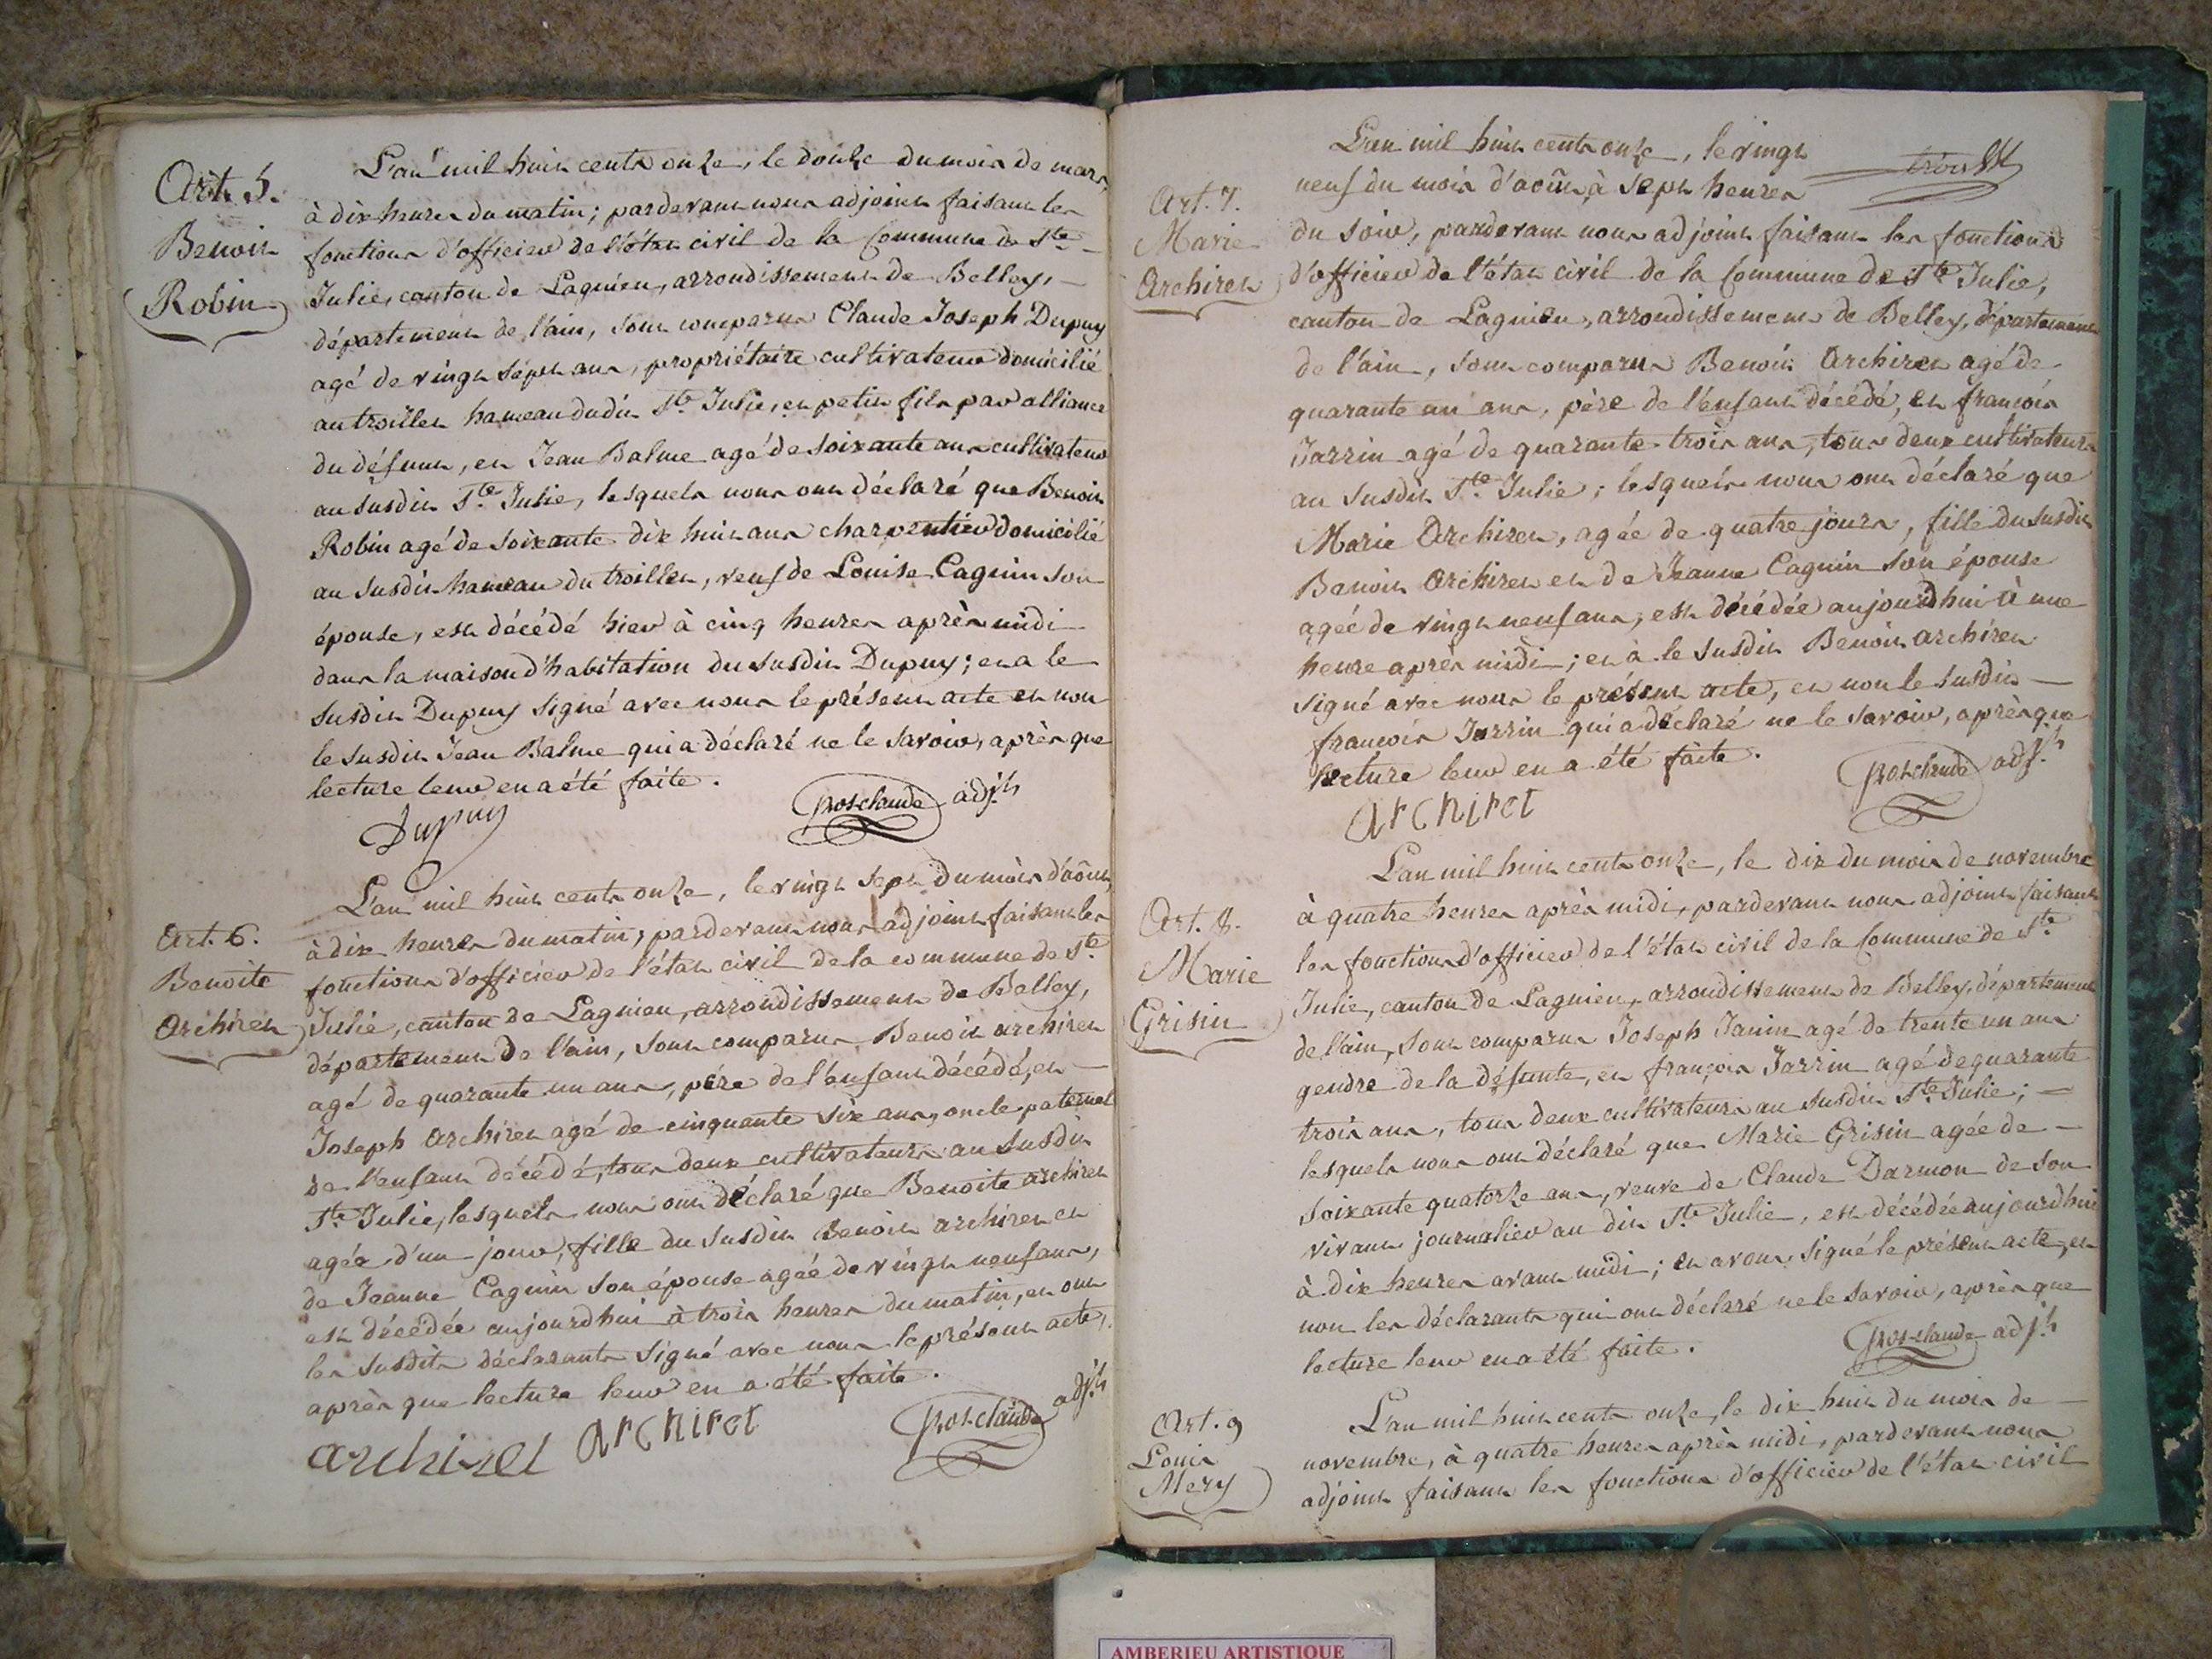 Art. 5.
Benoit
Robin
L'an mil huit cents onze, le douze du mois de mars,
à dix heures du matin; pardevant nous adjoint faisant les
fonctions d'officier de l'état civil de la Commune de Ste
Julie, canton de Lagnieu, arrondissement de Belley,
département de l'ain, sont comparus Claude Joseph Dupuy
agé de vingt sept ans, propriétaire cultivateur domicilié
au troillet hameau dudit Ste Julie, et petit fils par alliance
du défunt, et Jean Balme agé de soixante ans cultivateur
au susdit Ste Julie, lesquels nous ont déclaré que Benoit
Robin agé de soixante dix huit ans charpentier domicilié
au susdit hameau du troillet, veuf de Louise Cagnin son
épouse, est décédé hier à cinq heures après midi
dans la maison d'habitation du susdit Dupuy; et a le
susdit Dupuy signé avec nous le présent acte et non
le susdit Jean Balme qui a déclaré ne le savoir, après que
lecture leur en a été faite.
Dupuy
Grosclaude adjt
Art. 6.
Benoite
Archiret
L'an mil huit cents onze, le vingt sept du mois d'août,
à dix heures du matin; pardevant nous adjoint faisant les
fonctions d'officier de l'état civil de la commune de Ste
Julie, canton de Lagnieu, arrondissement de Belley,
département de l'ain, sont comparus Benoit archiret
agé de quarante un ans, père de l'enfant décédé, et
Joseph Archiret agé de cinquante six ans, oncle paternel
de l'enfant décédé, tous deux cultivateurs au susdit
Ste Julie, lesquels nous ont déclaré que Benoite archiret
agée d'un jour, fille du susdit Benoit archiret et
de Jeanne Cagnin son épouse agée de vingt neuf ans,
est décédée aujourd'hui à trois heures du matin, et ont
les susdits déclarants signé avec nous le présent acte,
après que lecture leur en a été faite.
archiret archiret
Grosclaude adjt
Art. 7.
Marie
Archiret
L'an mil huit cents onze, le vingt
neuf du mois d'août à sept heures
du soir, pardevant nous adjoint faisant les fonctions
d'officier de l'état civil de la Commune de Ste Julie,
canton de Lagnieu, arrondissement de Belley, département
de l'ain, sont comparus Benoit Archiret agé de
quarante un ans, père de l'enfant décédé, et françois
Jarrin agé de quarante trois ans, tous deux cultivateurs
au susdit Ste Julie; lesquels nous ont déclaré que
Marie Archiret, agée de quatre jours, fille du susdit
Benoit Archiret et de Jeanne Cagnin son épouse
agée de vingt neuf ans, est décédée aujourd'hui à une
heure après midi; et à le susdit Benoit archiret
signé avec nous le présent acte, et non le susdit
françois Jarrin qui a déclaré ne le savoir, après que
lecture leur en a été faite.
archiret
Grosclaude adjt
Art. 8.
Marie
Grisin
L'an mil huit cents onze, le dix du mois de novembre
à quatre heures après midi, pardevant nous adjoint faisant
les fonctions d'officier de l'état civil de la Commune de Ste
Julie, canton de Lagnieu, arrondissement de Belley, département
de l'ain, sont comparus Joseph Janin agé de trente un ans
gendre de la défunte, et françois Jarrin agé de quarante
trois ans, tous deux cultivateurs au susdit Ste Julie;
lesquels nous ont déclaré que Marie Grisin agée de
soixante quatorze ans, veuve de Claude Darmon de son
vivant journalier au dit Ste Julie, est décédée aujourd'hui
à dix heures avant midi; et avons signé le présent acte, et
non les déclarants qui ont déclaré ne le savoir, après que
lecture leur en a été faite.
Grosclaude adjt
Art. 9
Louis
Mery
L'an mil huit cents onze, le dix huit du mois de
novembre, à quatre heures après midi, pardevant nous
adjoint faisant les fonctions d'officier de l'état civil
AMBERIEU ARTISTIQUE